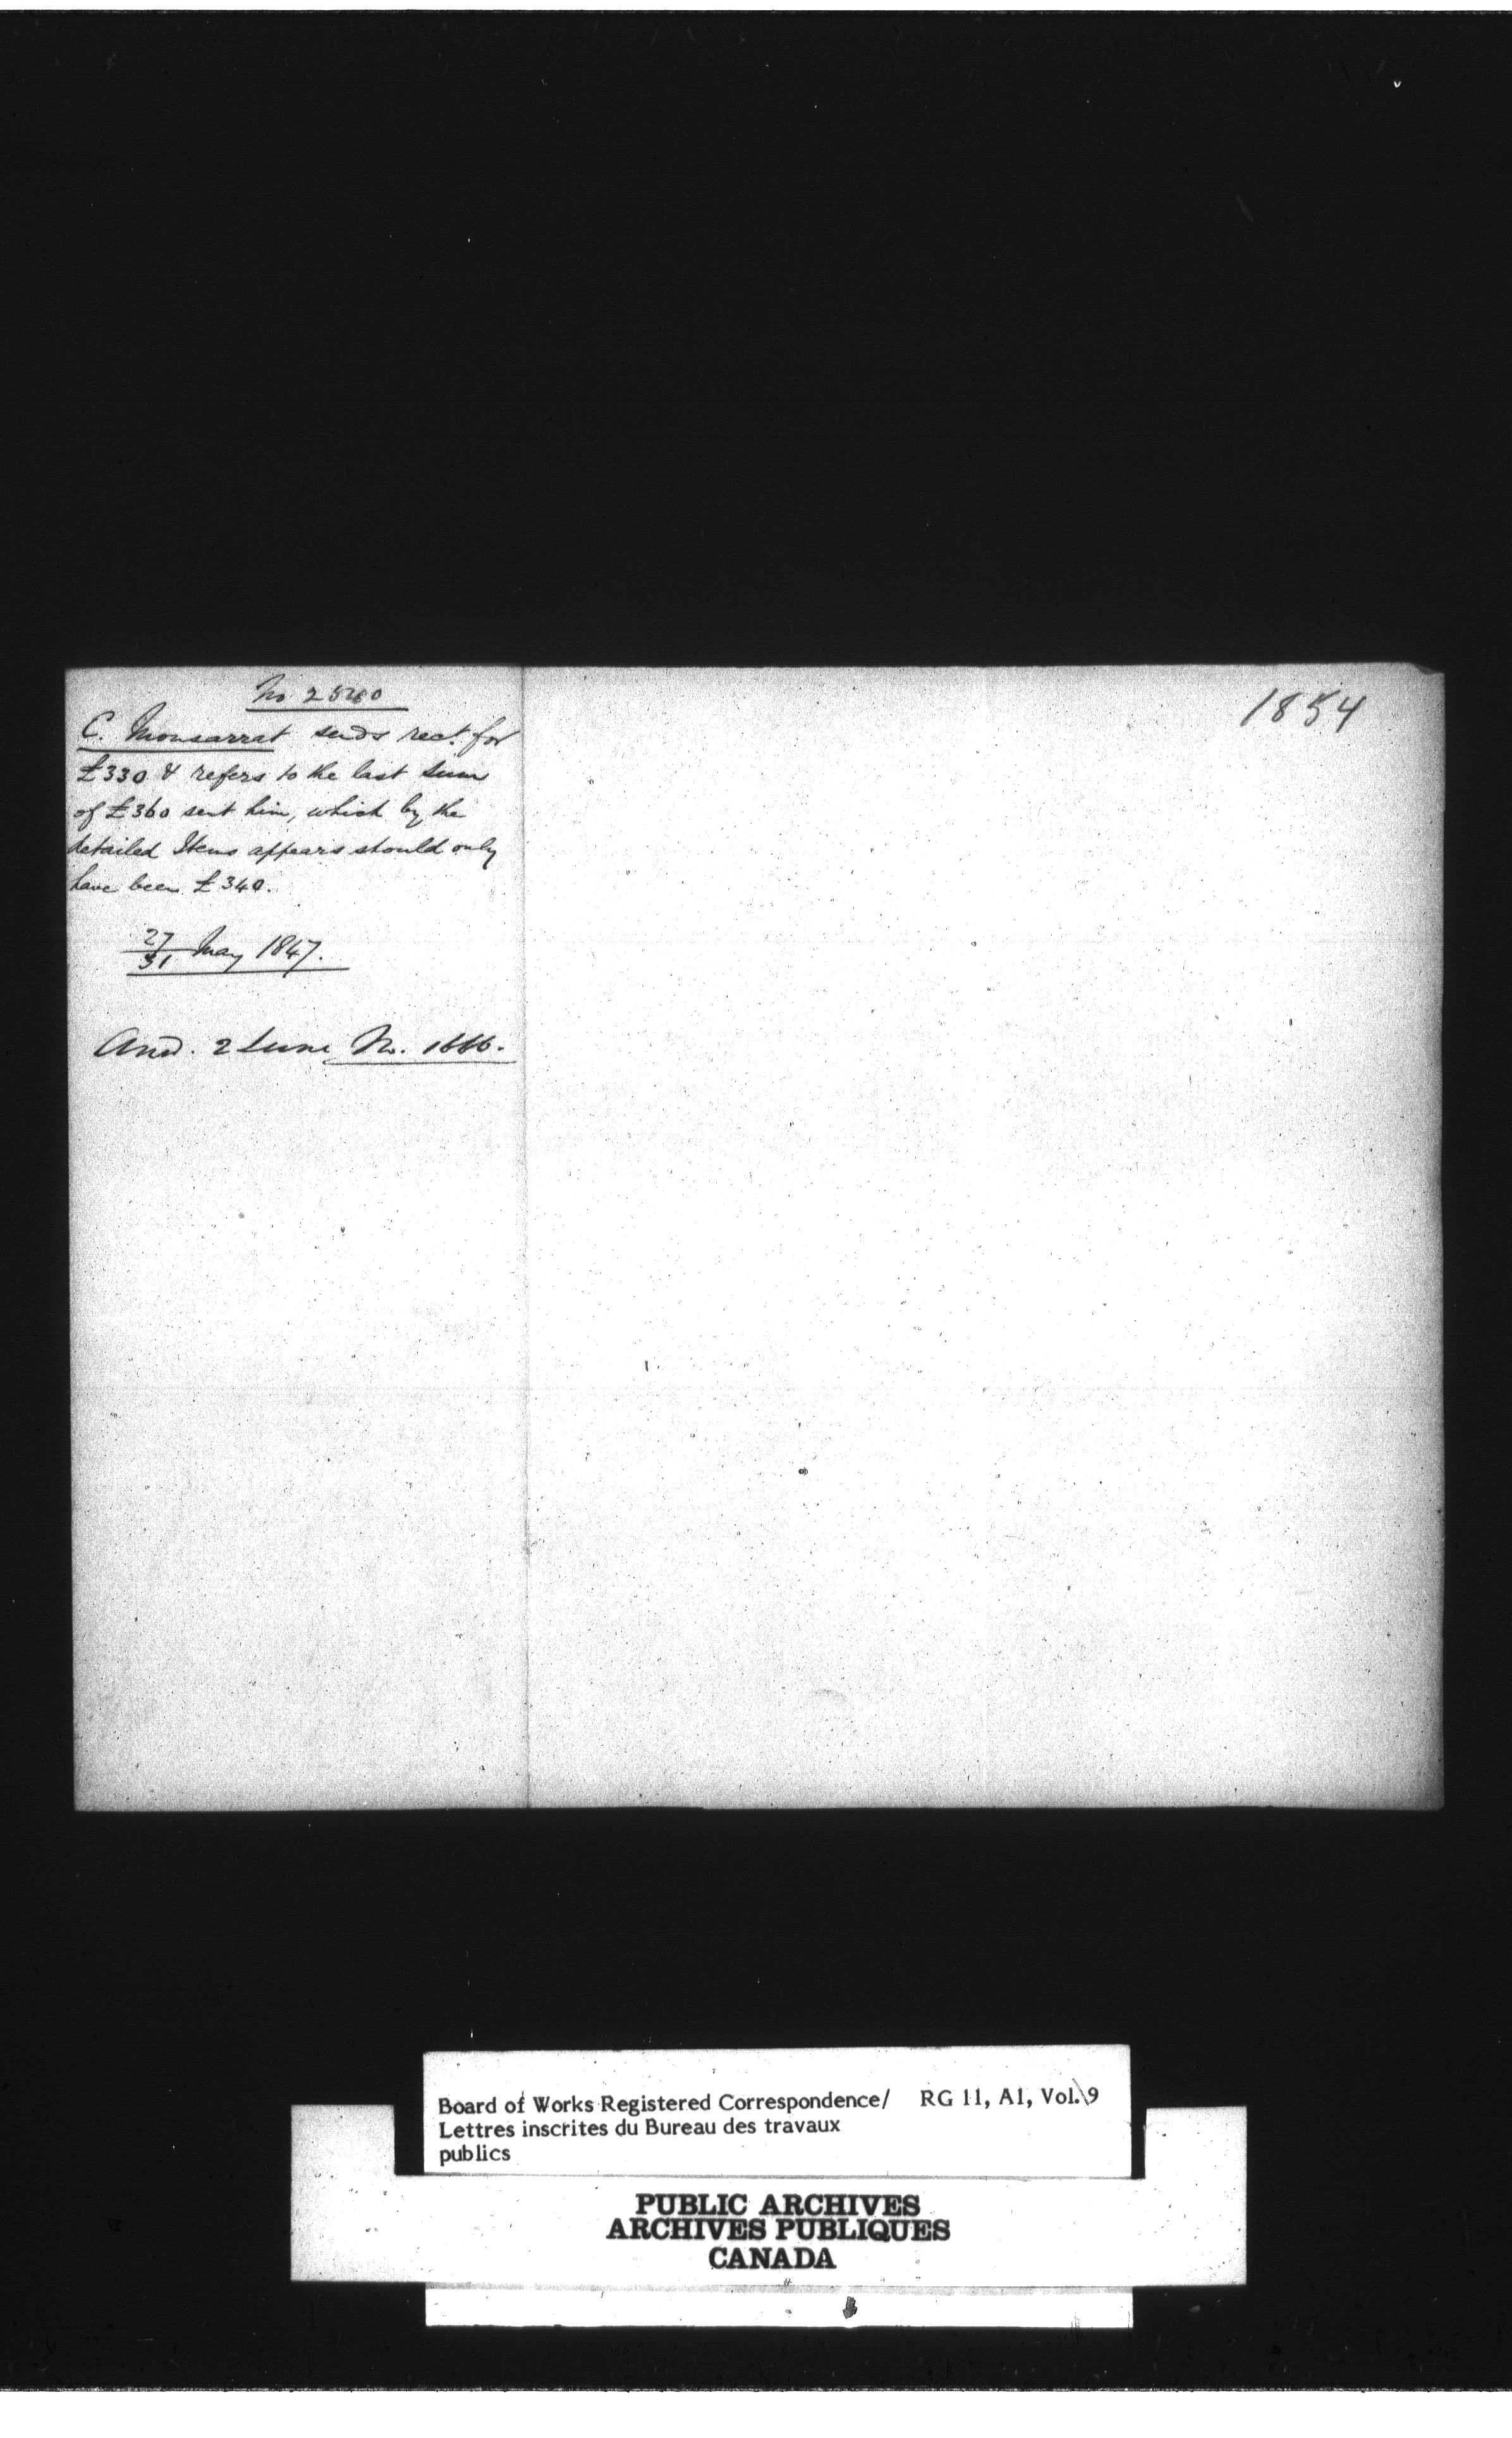 1854
C. Monsarrat sends rect. for
£330 & refers to the last sum
of £360 sent him, which by the
detailed Items appears should only
have been £340.
27/31 May 1847.
Ansd. 2 June No. 1666.
Board of Works Registered Correspondence/ RG 11, A1, Vol. 9
Lettres inscrites du Bureau des travaux
publics
PUBLIC ARCHIVES
ARCHIVES PUBLIQUES
CANADA